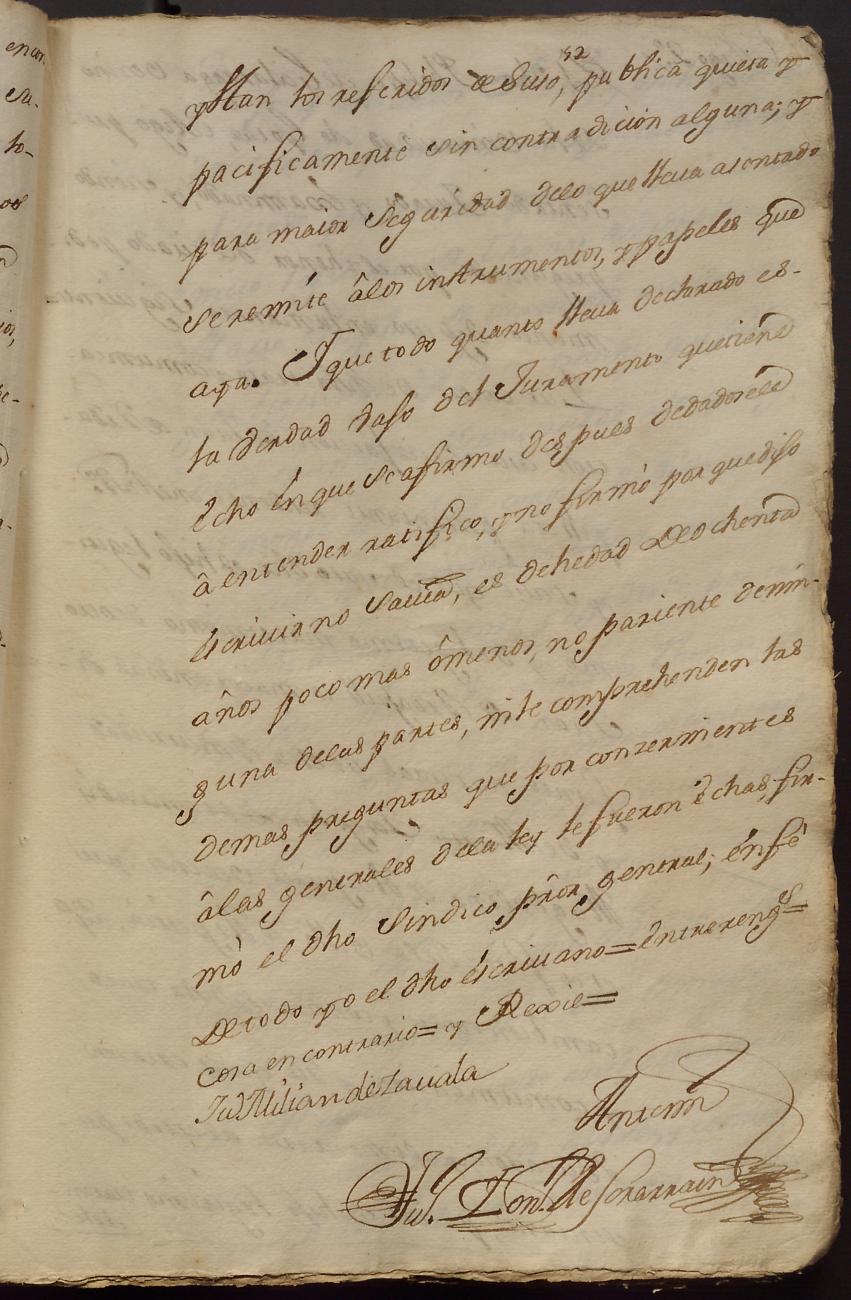 52
y Han los referidos de Suso, publica quieta y
pacificamente sin contradicion alguna; y
para maior Seguridad delo que lleva asentado
se remite âlos instrumentos, y papeles que
aya. Y que todo quanto lleva declarado es-
la verdad vajo del Juramento que tiene
êcho ên que se afirmo despues de dadosele
â entender ratifico, y no firmò por que dijo
êscrivir no Savia, es de hedad de ochenta
años poco mas ômenos, no pariente de nin-
guna delas partes, ni le comprehenden las
demas preguntas que por conzernientes
âlas generales dela ley le fueron êchas, fir-
mò el dho Sindico prôr general; ên fê
de todo yo el dho êscrivano= êntrereng.s=
cosa en contrario= y Rexie=
Ju. Milian de Zavala
Antemi
Ju.